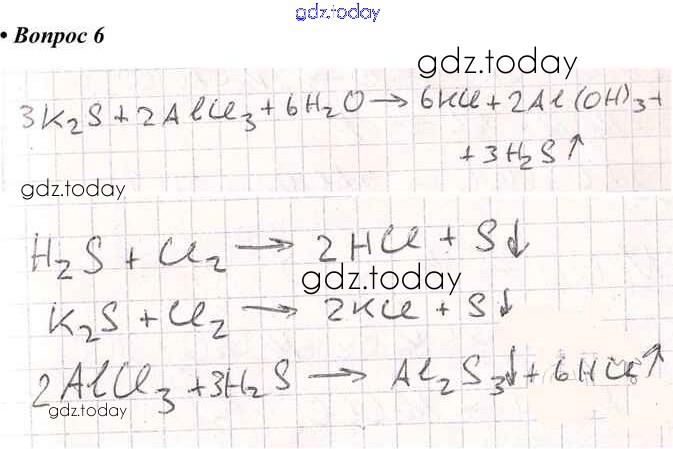 gdz.today
• Вопрос 6
gdz.today
3K₂S + 2AlCl₃ + 6H₂O → 6KCl + 2Al(OH)₃ +
+ 3H₂S↑
gdz.today
H₂S + Cl₂ → 2HCl + S↓
gdz.today
K₂S + Cl₂ → 2KCl + S↓
2AlCl₃ + 3H₂S → Al₂S₃↓ + 6HCl↑
gdz.today